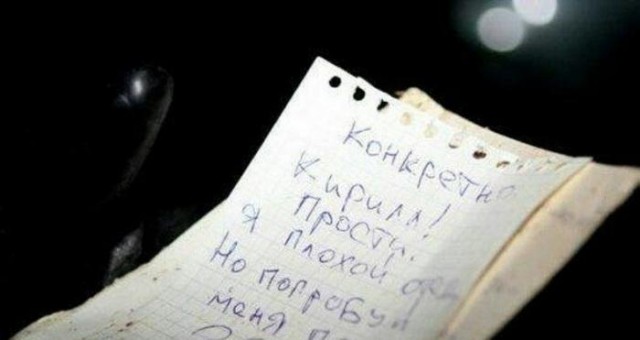 Конкретно
Кирилл!
Прости!
Я плохой
Но попробуй
меня